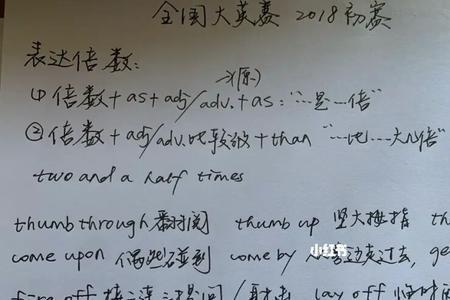 全国大英赛 2018初赛
表达倍数:
(原)
(1) 倍数+as+adj/adv.+as:"…是…倍"
② 倍数+adj/adv.比较级+than "…比…大几倍"
two and a half times
thumb through 翻阅 thumb up 竖大拇指 th
come upon 偶然碰到 come by 从旁边走过, ge
小红书
fire off lay off